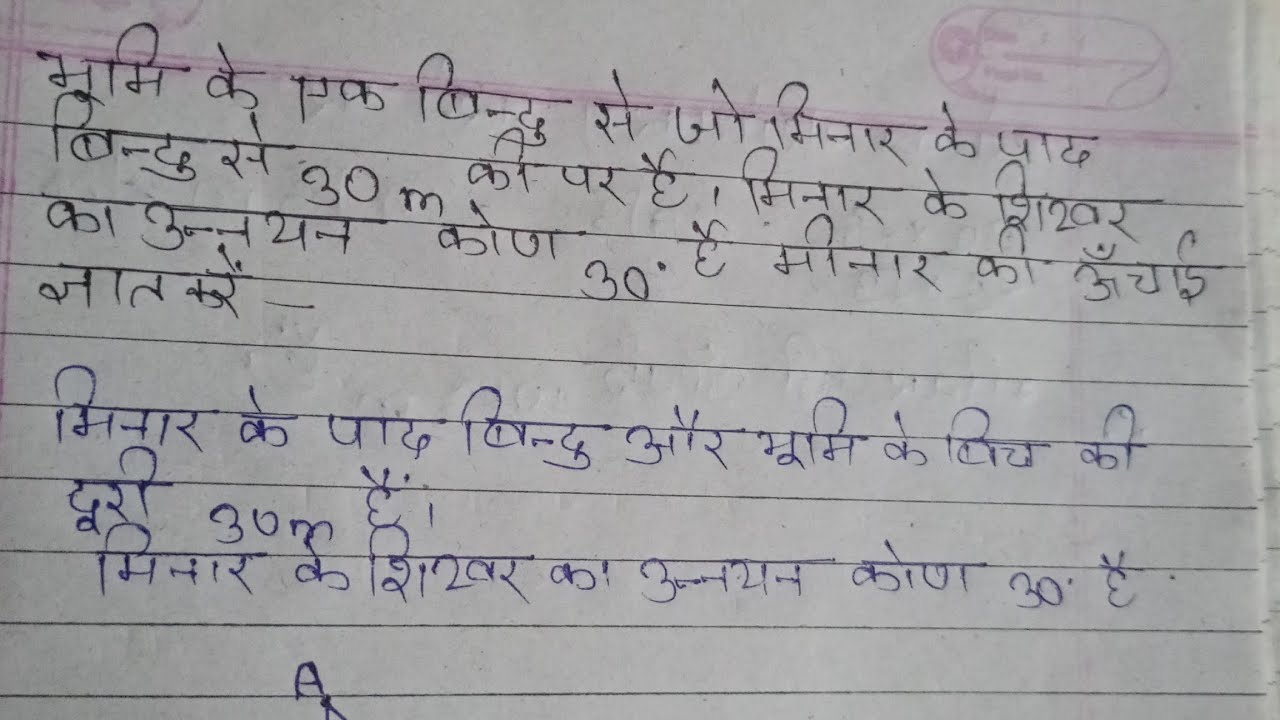 भूमि के एक बिन्दु से जो मिनार के पाद
बिन्दु से 30m की पर है। मिनार के शिखर
का उन्नयन कोण 30° है मीनार की ऊँचाई
ज्ञात करें –
मिनार के पाद बिन्दु और भूमि के बिच की
दूरी 30m हैं।
मिनार के शिखर का उन्नयन कोण 30° है
A